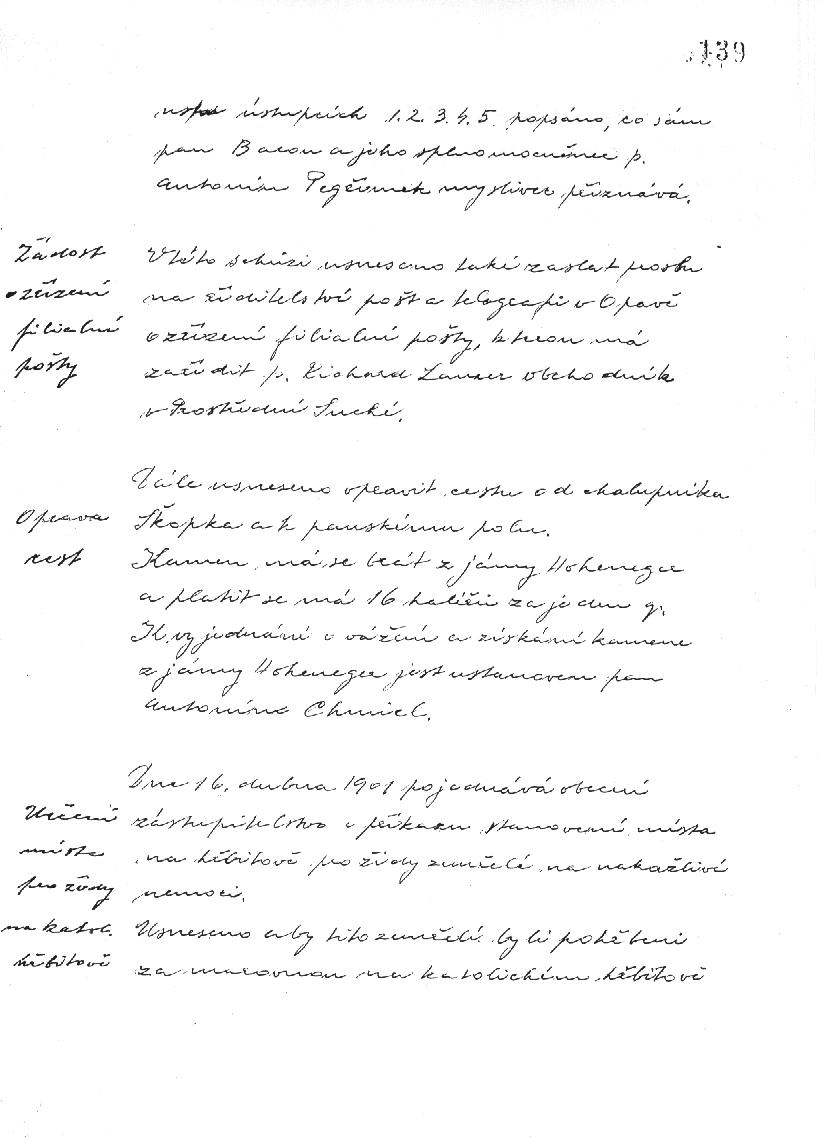 139
ústupcích 1.2.3.4.5. popsáno, co sám
pan Bacon a jeho splnomocněnec p.
Antonín myslivec přiznává.
Žádost
o zřízení
filialní
pošty
V této schůzi usneseno také zaslat prosbu
na ředitelství pošt a telegrafů v Opavě
o zřízení filialní pošty, kterou má
zařídit p. Richard obchodník
v Prostřední Suché.
Oprava
cest
Dále usneseno opravit cestu od chalupníka
Škopka a k panskému polu.
Kamen má se brát z jámy Hohenegger
a platit se má 16 haléřů za jeden q.
K vyjednání o vážení a získání kamene
z jámy Hohenegger jest ustanoven pan
Antonín Chmiel.
Určení
místa
pro židy
na katol.
hřbitově
Dne 16. dubna 1901 pojednává obecní
zástupitelstvo o příkazu stanovení místa
na hřbitově pro židy zemřelé na nakažlivé
nemoci.
Usneseno aby tito zemřelí byli pohřbeni
za na katolickém hřbitově